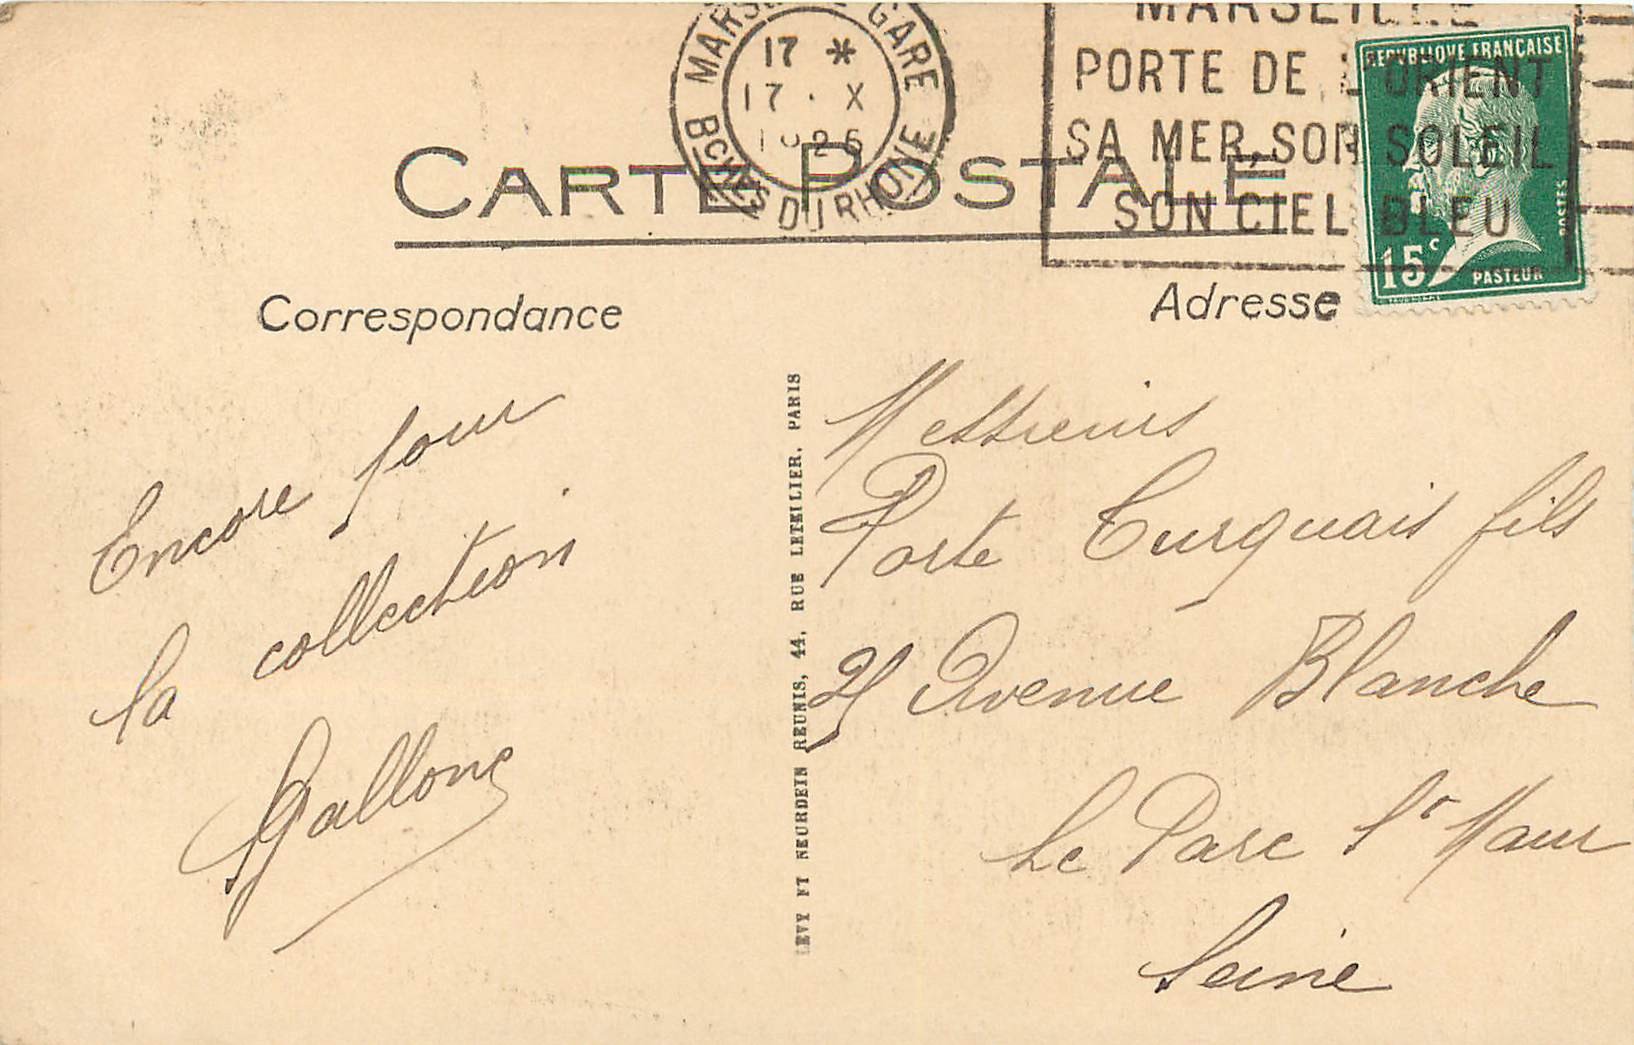 MARSEILLE GARE
17 *
17 · X
1925
BCHES DU RHONE
MARSEILLE
PORTE DE L'ORIENT
SA MER, SON SOLEIL
SON CIEL BLEU
REPUBLIQUE FRANÇAISE
POSTES
15c
PASTEUR
CARTE POSTALE
Correspondance
Adresse
Encore pour
la collection
Gallone
LEVY ET NEURDEIN REUNIS, 44, RUE LETELLIER, PARIS
Messieurs
Porte Turquais fils
21 Avenue Blanche
Le Parc St Maur
Seine